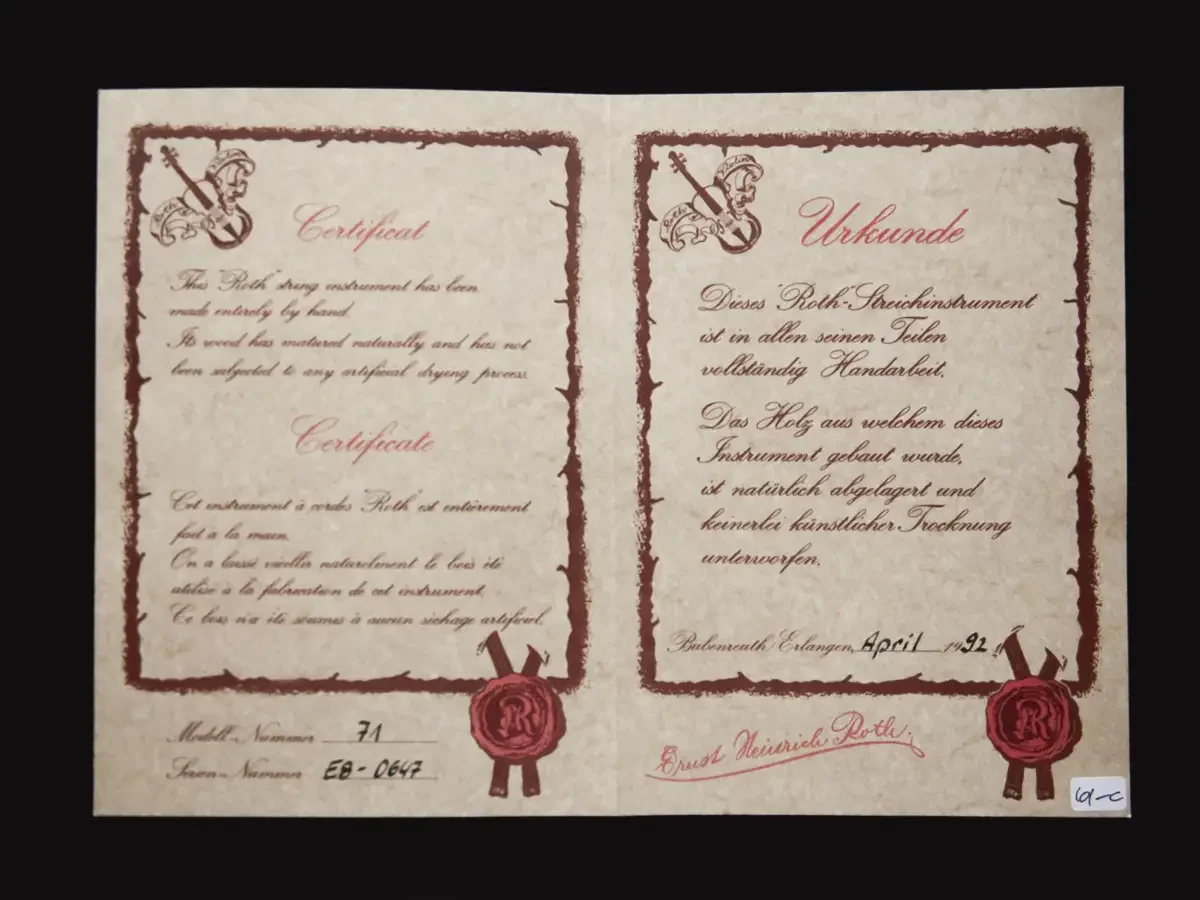 Roth
Violin
Certificat
This "Roth" string instrument has been
made entirely by hand.
Its wood has matured naturally and has not
been subjected to any artificial drying process.
Certificate
Cet instrument à cordes "Roth" est entièrement
fait a la main.
On a laissé vieiller naturelment le bois été
utilisé a la fabrication de cet instrument.
Ce bois n'a été soumis à aucun séchage artificiel.
Modell-Nummer 71
Serien-Nummer EB-0647
R
Roth
Violin
Urkunde
Dieses "Roth"-Streichinstrument
ist in allen seinen Teilen
vollständig Handarbeit.
Das Holz aus welchem dieses
Instrument gebaut wurde,
ist natürlich abgelagert und
keinerlei künstlicher Trocknung
unterworfen.
Bubenreuth/Erlangen, April 1992
Ernst Heinrich Roth.
R
61-C